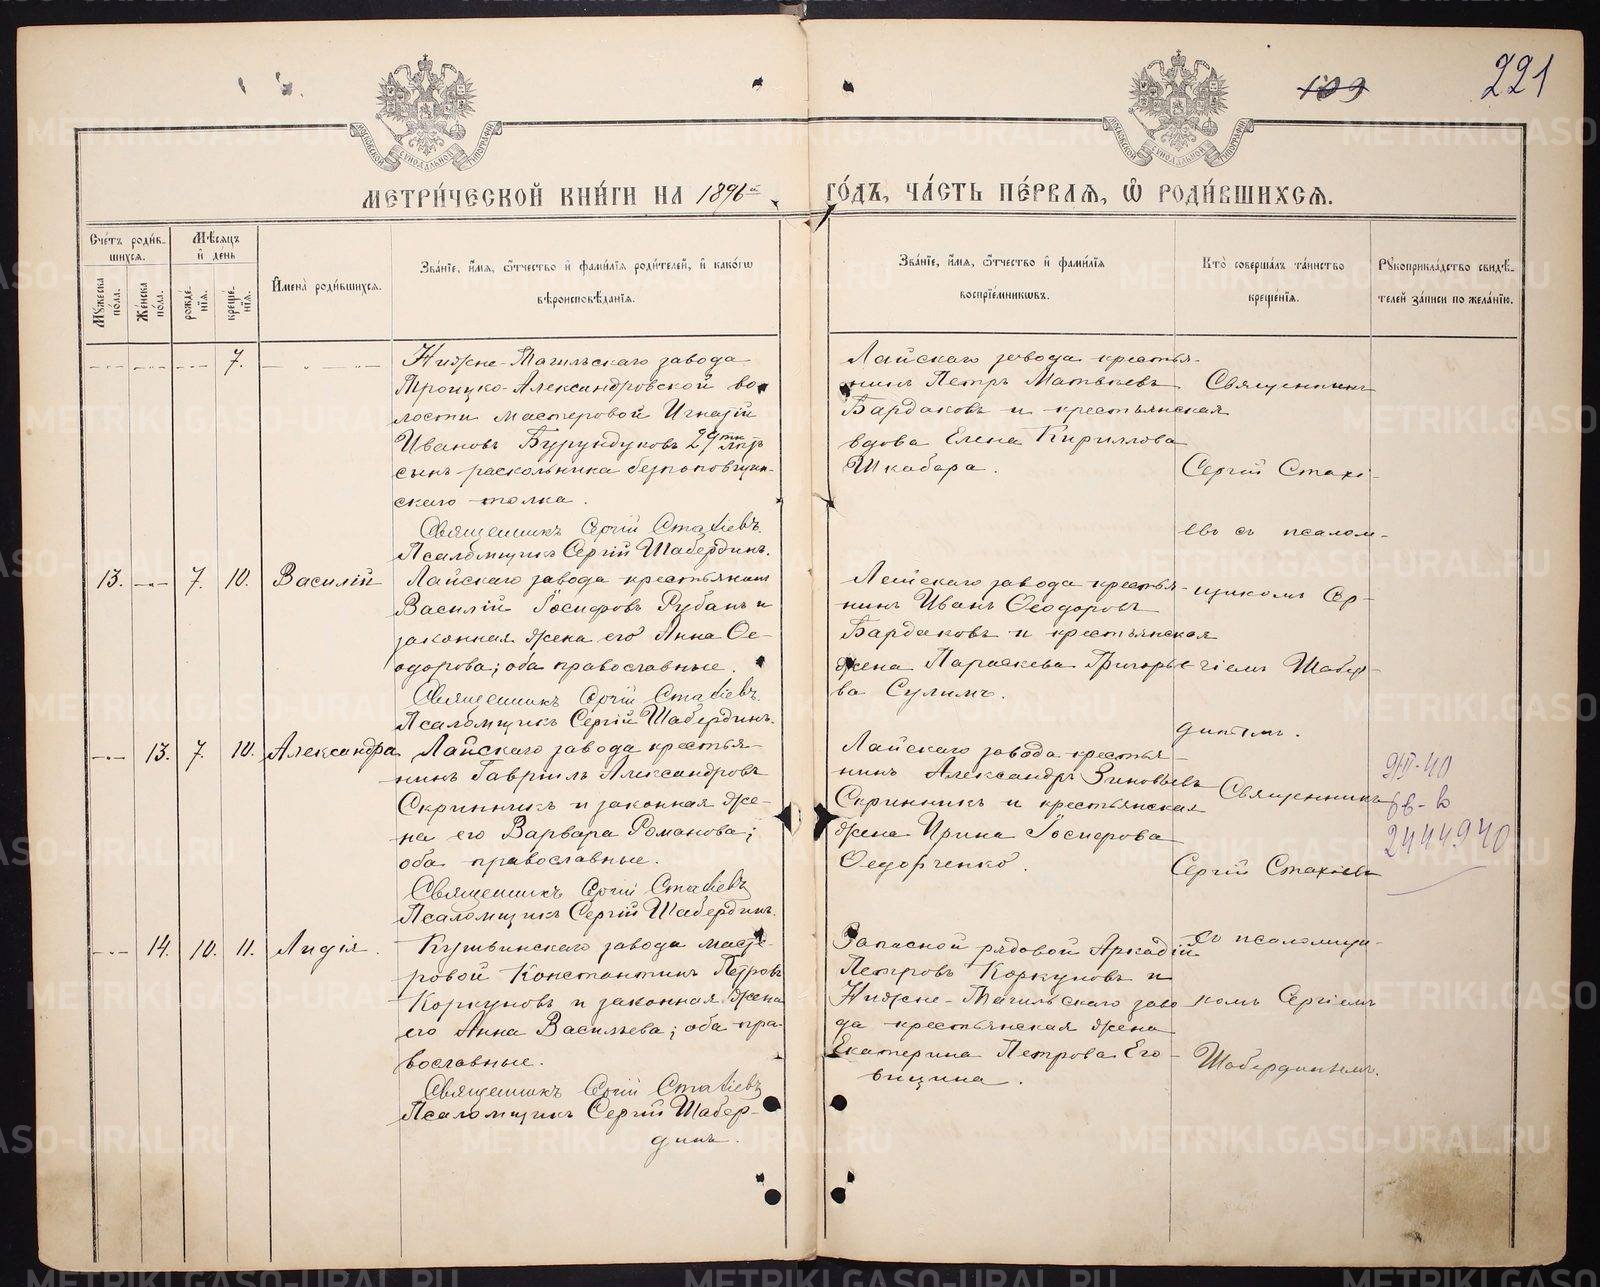 221
109
МЕТРИЧЕСКОЙ КНИГИ НА 1896й ГОДЪ, ЧАСТЬ ПЕРВАЯ, Ѡ РОДИВШИХСЯ.
Счетъ родив-
шихся.
Мужеска пола.
Женска пола.
Мѣсяцъ и день
рожде-
нія.
креще-
нія.
Имена родившихся.
Званіе, имя, ѿчество и фамилія родителей, и какогѡ
вѣроисповѣданія.
Званіе, имя, ѿчество и фамилія
воспріемниковъ.
Кто совершалъ таинство
крещенія.
Рукоприкладство свидѣ-
телей записи по желанію.
7.
Нижне-Тагильскаго завода
Троицко-Александровской во-
лости мастеровой Игнатій
Ивановъ Бурундуковъ 29ти лѣтъ
сынъ раскольника безпоповщин-
скаго толка.
Священникъ Сергій Стахіевъ.
Псаломщикъ Сергій Шабердинъ.
Лайскаго завода крестья-
нинъ Петръ Матвѣевъ
Бардаковъ и крестьянская
вдова Елена Кириллова
Шкабара.
13. 7. 10. Василій
Лайскаго завода крестьянинъ
Василій Іосифовъ Рубанъ и
законная жена его Анна Ѳе-
одорова; оба православные.
Священникъ Сергій Стахіевъ.
Псаломщикъ Сергій Шабердинъ.
Лайскаго завода крестья-
нинъ Иванъ Ѳеодоровъ
Бардаковъ и крестьянская
жена Параскева Григорье-
ва Сулимъ.
Священникъ
Сергій Стахі-
евъ съ псалом-
щикомъ Сер-
гіемъ Шабер-
динымъ.
13. 7. 10. Александра
Лайскаго завода крестья-
нинъ Гавріилъ Александровъ
Скринникъ и законная же-
на его Варвара Романова;
оба православные.
Священникъ Сергій Стахіевъ
Псаломщикъ Сергій Шабердинъ.
Лайскаго завода крестья-
нинъ Александръ Зиновьевъ
Скринникъ и крестьянская
жена Ирина Іосифова
Ѳедорченко.
14. 10. 11. Лидія.
Кушвинскаго завода масте-
ровой Константинъ Петровъ
Коркуновъ и законная жена
его Анна Васильева; оба пра-
вославные.
Священникъ Сергій Стахіевъ
Псаломщикъ Сергій Шабер-
динъ.
Запасной рядовой Аркадій
Петровъ Коркуновъ и
Нижне-Тагильскаго заво-
да крестьянская жена
Екатерина Петрова Его-
вицина.
Священникъ
Сергій Стахіевъ
съ псаломщи-
комъ Сергіемъ
Шабердинымъ.
2444940
METRIKI.GASO-URAL.RU